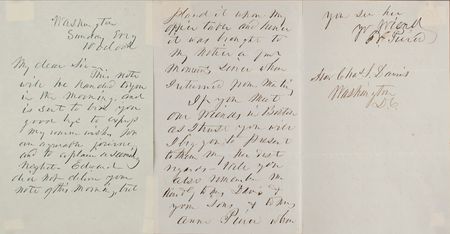 Washington
Sunday Evg
10 oclock
My dear Sir—
This note
will be handed to you
in the morning and
is sent to bid you
good bye to express
my warm wishes for
an agreeable journey
and to explain a second
neglect. Edward
did not deliver your
note of this morning but
placed it upon my
office table and hence
it was brought to
my notice a few
moments since when
I returned from
If you meet
our friends in Boston
as I trust you will
I beg you to present
to them my kindest
regards. Will you
also remember me
kindly to Mrs Davis &
your Sons, & to Mrs
Anne Peirce when
you see her
yr friend
Peirce
Hon Chas. S. Davis
Washington
D.C.